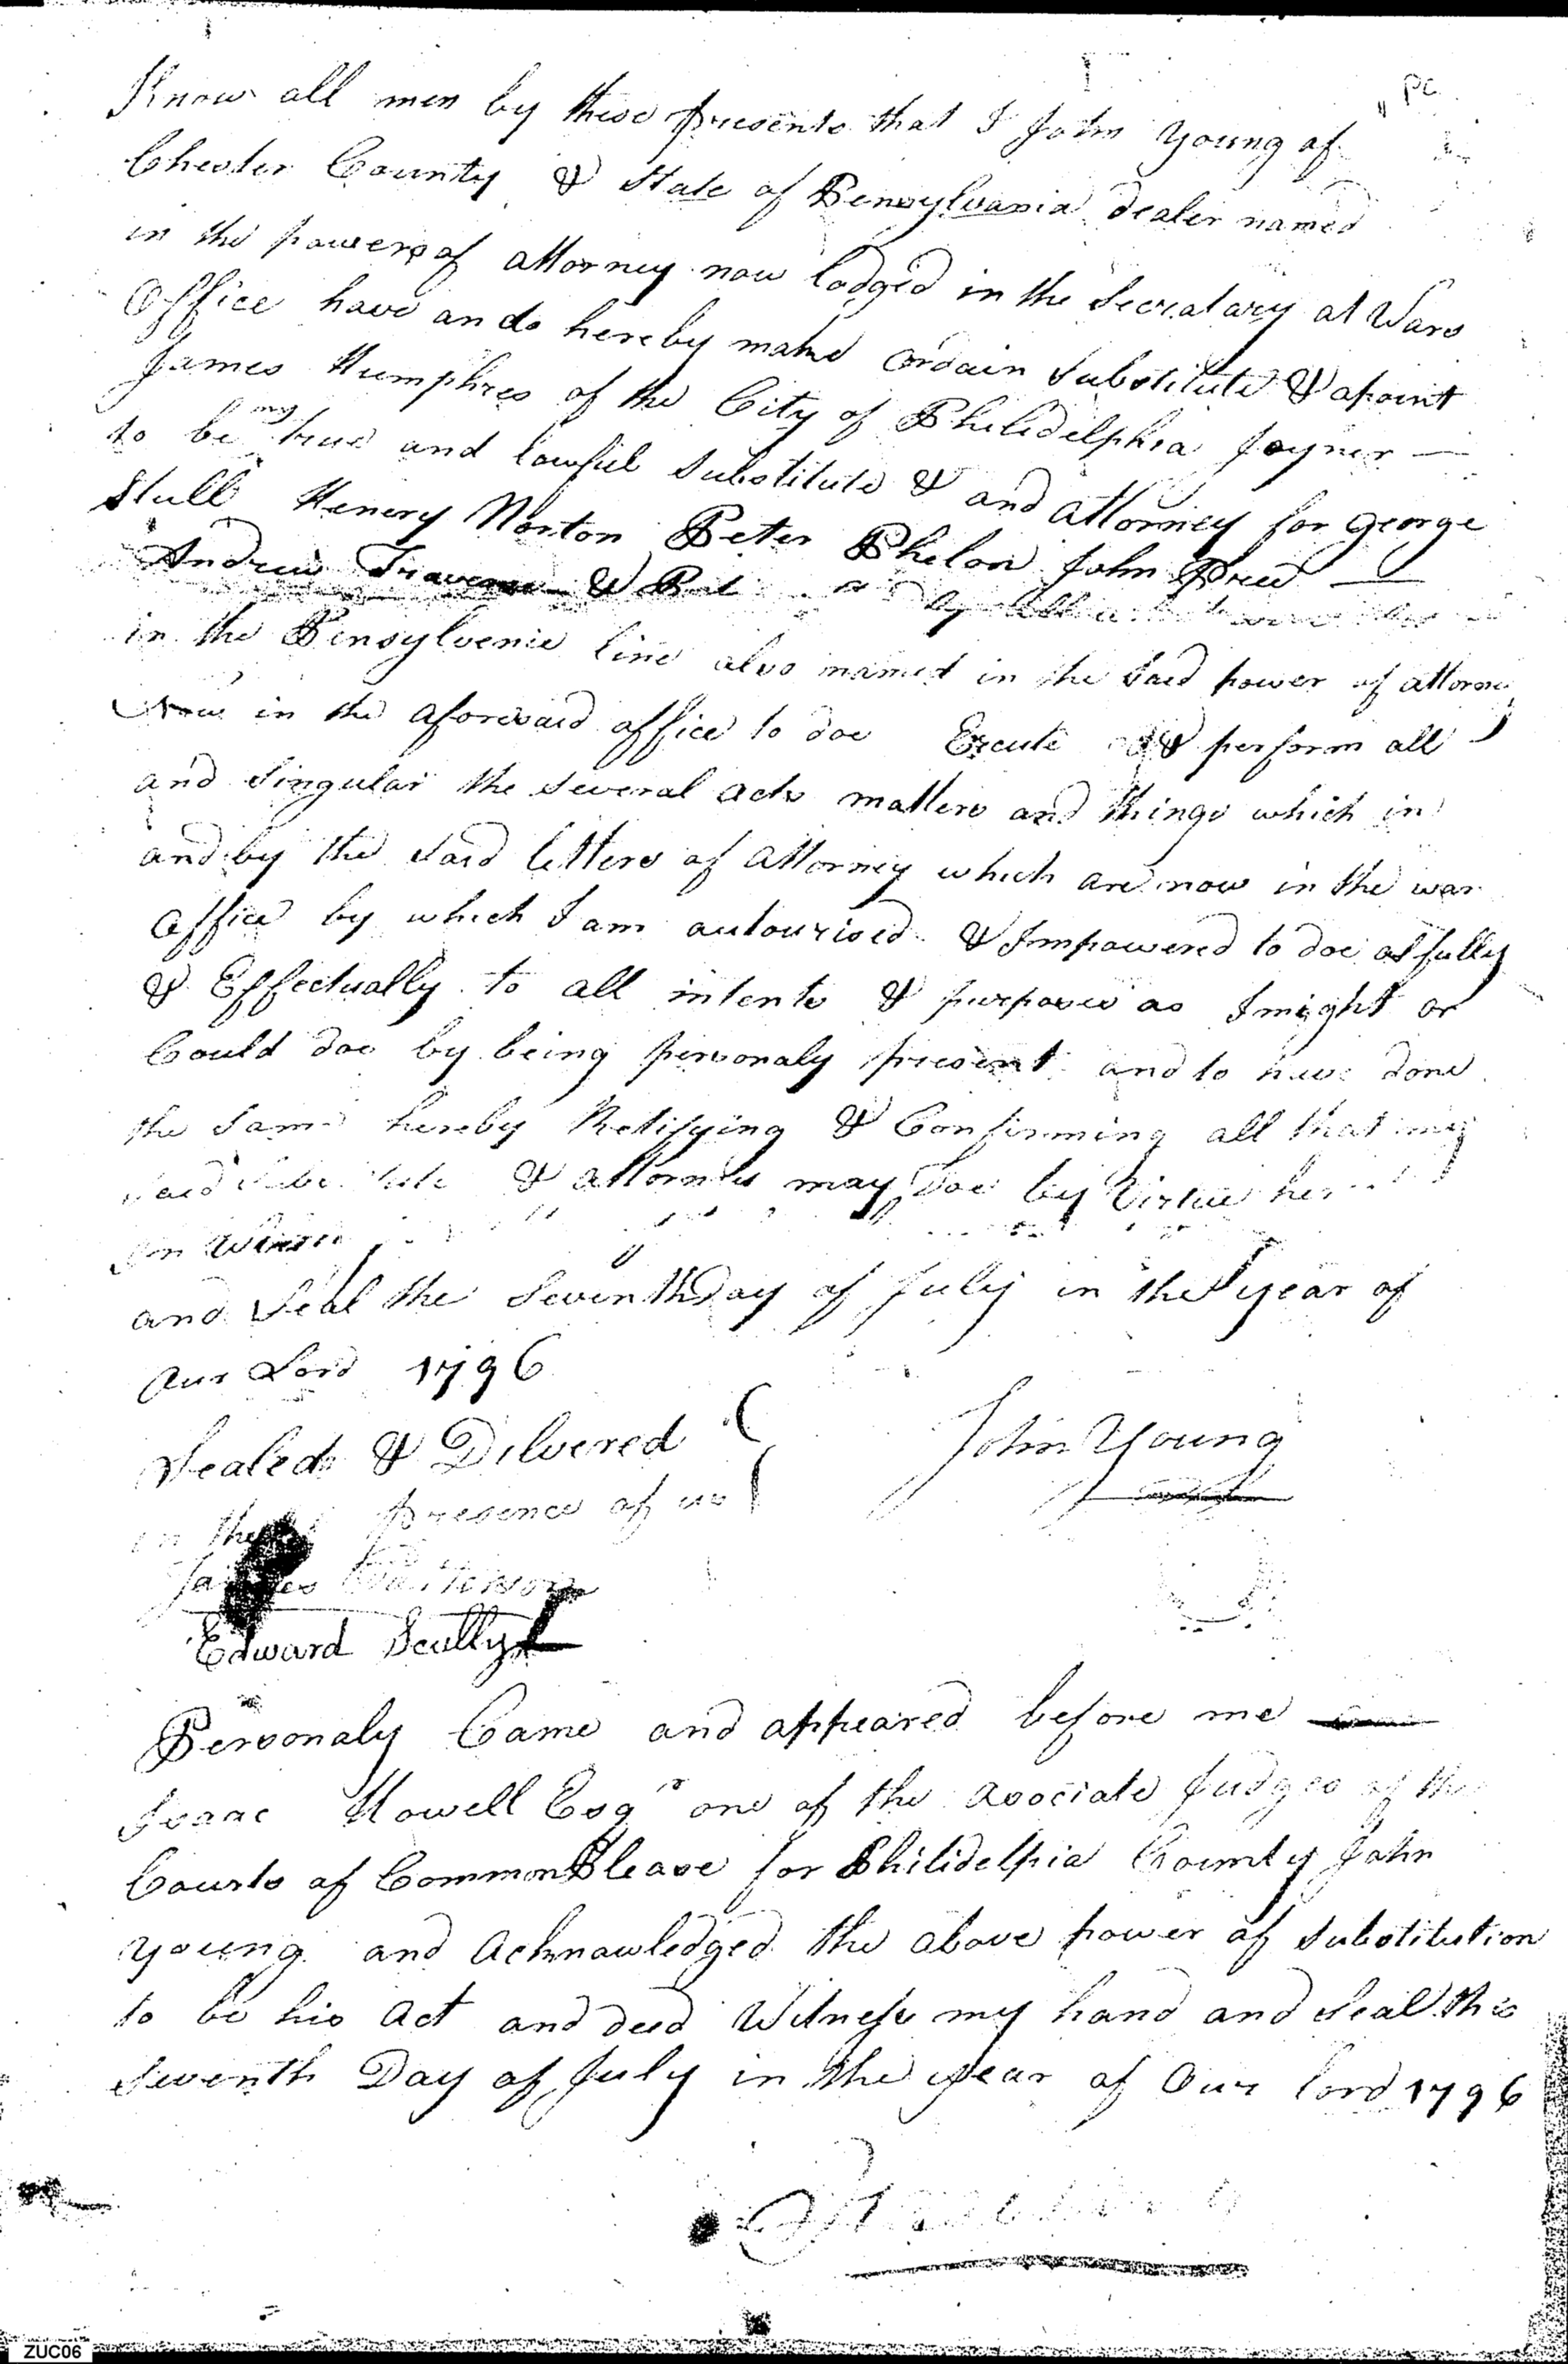 Know all men by these presents that I John Young of
Chester County & State of Pensylvania dealer named
in the powers of attorney now lodged in the Secratary at Wars
Office have an do hereby make ordain Substitute & apoint
James Humphres of the City of Philidelphia Joyner —
to be my true and lawful Substitute & and attorney for George
Stull Henery Norton Peter Phelon John Pree —
Andrew &
in the Pensylvenie line also named in the Said power of attorney
Now in the aforesaid office to doe Excute & perform all
and Singular the Several acts matters and things which in
and by the Said letters of attorney which are now in the war
office by which I am autourised & Impowered to doe as fully
& Effectually to all intents & purposes as I might or
Could doe by being personaly present and to have done
the Same hereby Retifying & Confirming all that my
Said & attorney may doe by Virtue
In
and Seal the Seventh Day of July in the year of
our Lord 1796
Sealed & Dilvered
in the presence of us
John Young
James
Edward Scully
Personaly Came and appeared before me —
Isaac Howell Esqr one of the asociate Judges of the
Courts of Common Please for Philidelpia County John
Young and Acknowledged the above power of Substitution
to be his act and deed Witness my hand and Seal this
Seventh Day of July in the year of Our lord 1796
ZUC06